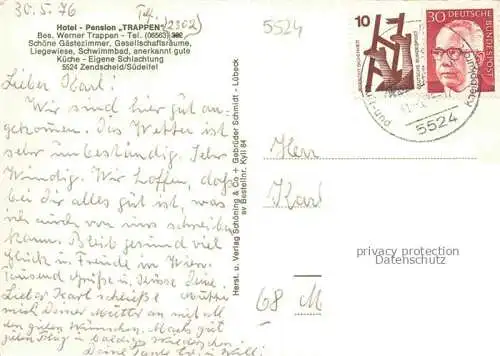 30.5.76
Tel. (2302)
5524
Hotel - Pension „TRAPPEN"
Bes. Werner Trappen - Tel. (06563)
Schöne Gästezimmer, Gesellschaftsräume,
Liegewiese, Schwimmbad, anerkannt gute
Küche - Eigene Schlachtung
5524 Zendscheid/Südeifel
Lieber Karl!
Wir sind hier gut an-
gekommen. Das Wetter ist
sehr unbeständig. Sehr
windig. Wir hoffen, daß
bei Dir alles gut ist, was
man von uns schreiben
kann. Bleib gesund viel
Glück u Freude im
Tausend Grüße u. Küsse Deine
Lieber Karl schließe
mich Deiner Mutter an mit all
den guten Wünschen. Machs gut
guten Flug u baldiges Wiedersehen
Deine Tante u. Willi
Herst. u. Verlag Schöning & Co + Gebrüder Schmidt - Lübeck
av Bestellnr. Kyll 84
10
30
DEUTSCHE BUNDESPOST
5524
Herr
Karl
privacy protection
Datenschutz
68 M